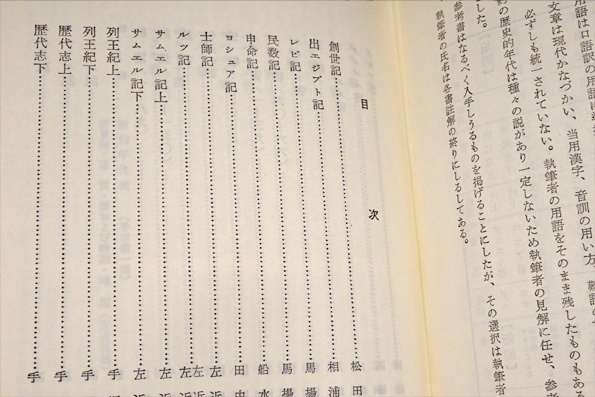 用語は口語訳の用語に
文章は現代かなづかい、当用漢字、音訓の用い方、
必ずしも統一されていない。執筆者の用語をそのまま残したものもある
の歴史的年代は種々の説があり一定しないため執筆者の見解に任せ、参考
した。
参考書はなるべく入手しうるものを掲げることにしたが、その選択は執筆者
執筆者の氏名は各書註解の終りにしるしてある。
目次
創世記……松田
出エジプト記……相浦
レビ記……馬場
民数記……馬場
申命記……船水
ヨシュア記……田中
士師記……左近
ルツ記……左近
サムエル記上……左近
サムエル記下……左
列王紀上……手
列王紀下……手
歴代志上……手
歴代志下……手